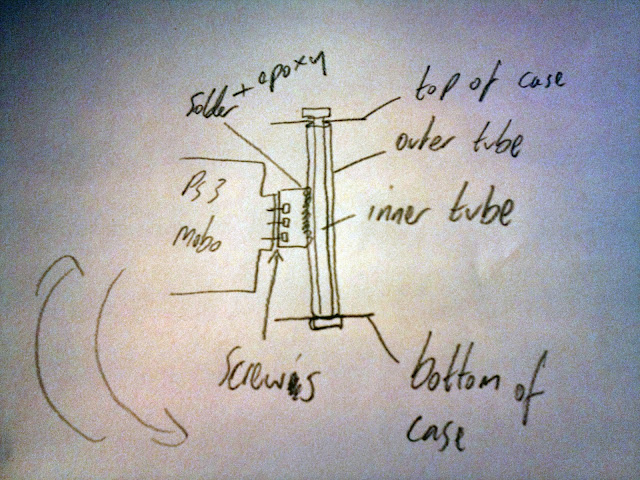 solder + epoxy
top of case
outer tube
PS3
Mobo
inner tube
Screws
bottom of
case